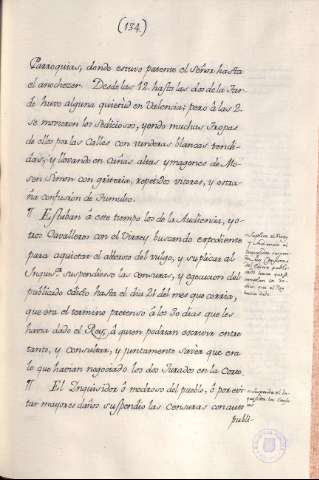 (134)
Parroquias, donde estuvo patente el Señor hasta
el anochezer. Desde las 12. hasta las dos de la Tar-
de huvo alguna quietud en Valencia; pero à las 2-
se movieron los Sediciosos, yendo muchas tropas
de ellos por las Calles con vanderas blancas tendi-
das, y llevando en Cañas altas ymagenes de Mo-
sen Simon con griteria, repetidos vivores, y estra-
ña confusion de tumulto.
¶ Estaban à este tiempo los de la Audiencia, y o-
tros Cavalleros con el Virrey buscando expediente
para aquietar el alboroto del vulgo, y suplicar al
Inquisr. suspendiese las censuras, y egecucion del
publicado edicto hasta el dia 21 del mes que corria,
que era el termino pretenso à los 30 dias que les
havia dado el Rey, à quien podrian escrivir entre
tanto, y consultar, y juntamente saver que era
lo que havian negociado los dos Jurados en la Corte.
¶ El Inquisidor ò medroso del pueblo, ò por evi-
tar mayores daños suspendio las Censuras con auto
publi-